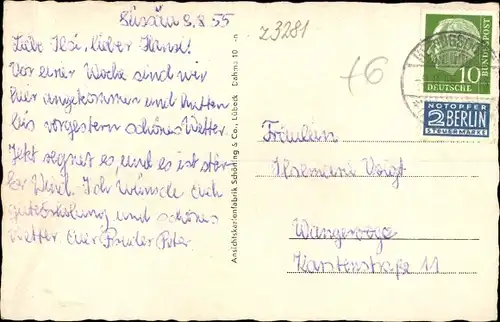 8.8.55
Liebe Ilse, lieber Hansi!
Vor einer Woche sind wir
hier angekommen und hatten
bis vorgestern schönes Wetter.
Jetzt regnet es, und es ist star-
ker Wind. Ich wünsche euch
gute Erholung und schönes
Wetter. Euer Bruder Peter.
Ansichtskartenfabrik Schöning & Co., Lübeck Dahme 10
Z3281
+6
10
DEUTSCHE
BUNDESPOST
NOTOPFER
2 BERLIN
STEUERMARKE
Fräulein
Ilsemarie Voigt
Wangerooge
Karstenstraße 11